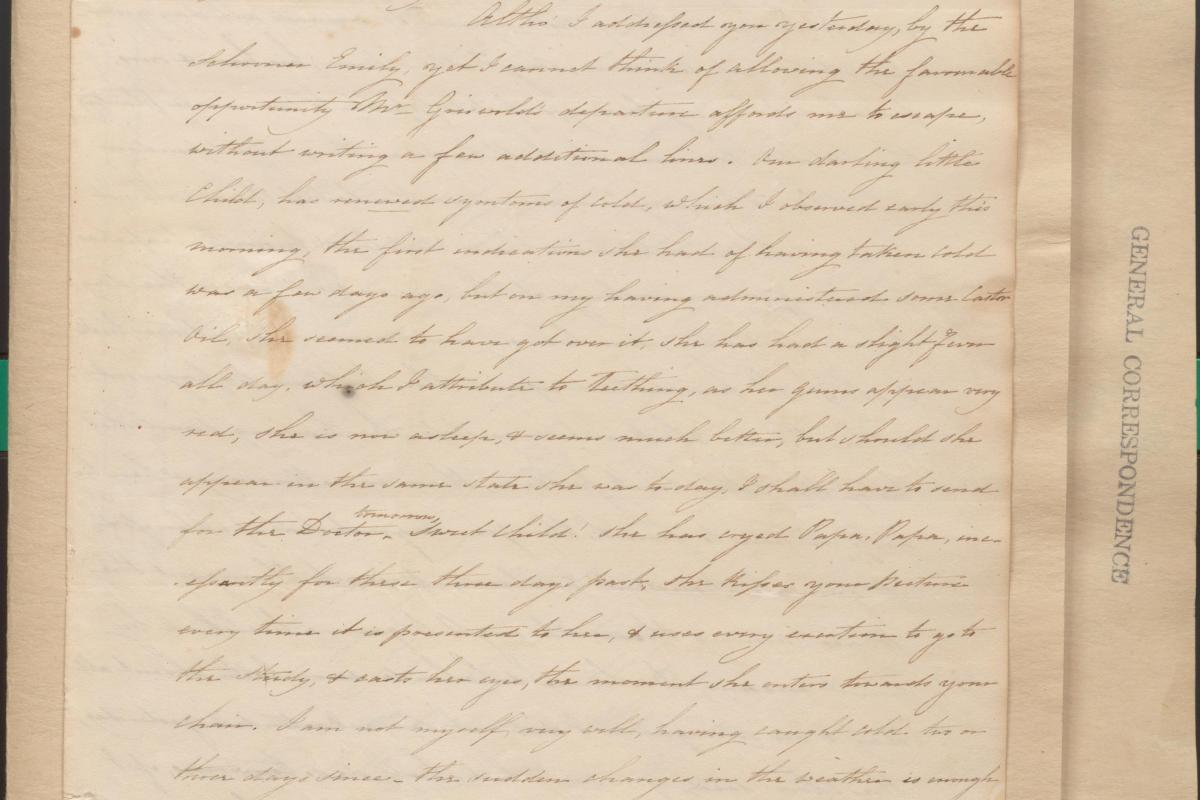 Altho' I addressed you yesterday, by the
Schooner Emily, yet I cannot think of allowing the favourable
opportunity Mr Griswold's departure affords me to escape,
without writing a few additional lines. Our darling little
Child, has renewed symtoms of cold, which I observed early this
morning, the first indications she had of having taken cold
was a few days ago, but on my having administered some Castor
Oil, she seemed to have got over it, she has had a slight fever
all day, which I attribute to Teething, as her gums appear very
red, she is now asleep, & seems much better, but should she
appear in the same state she was to day, I shall have to send
for the Doctor tomorrow, Sweet Child! she has cryed Papa, Papa, inc-
essantly for these three days past, she kisses your Picture
every time it is presented to her, & uses every exertion to go to
the Study, & casts her eyes, the moment she enters towards your
chair. I am not myself very well, having caught cold two or
three days since - the sudden changes in the weather is enough
GENERAL CORRESPONDENCE